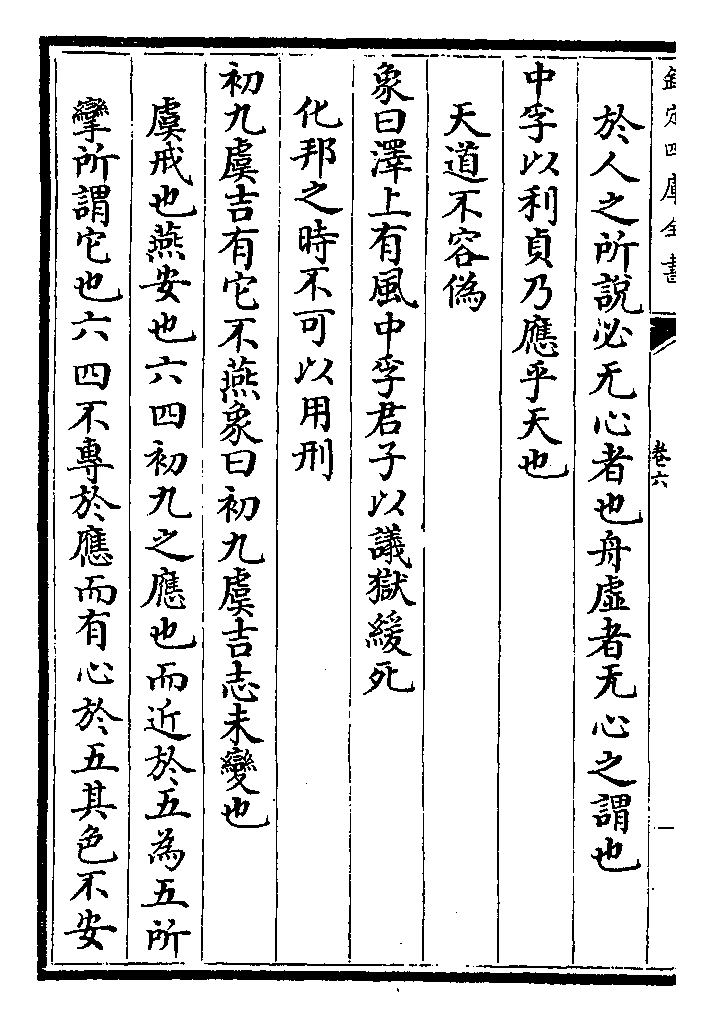 欽定四庫全書
卷六
於人之所説必无心者也舟虚者无心之謂也
中孚以利貞乃應乎天也
天道不容偽
象曰澤上有風中孚君子以議獄緩死
化邦之時不可以用刑
初九虞吉有它不燕象曰初九虞吉志未變也
虞戒也燕安也六四初九之應也而近於五為五所
攣所謂它也六四不專於應而有心於五其色不安